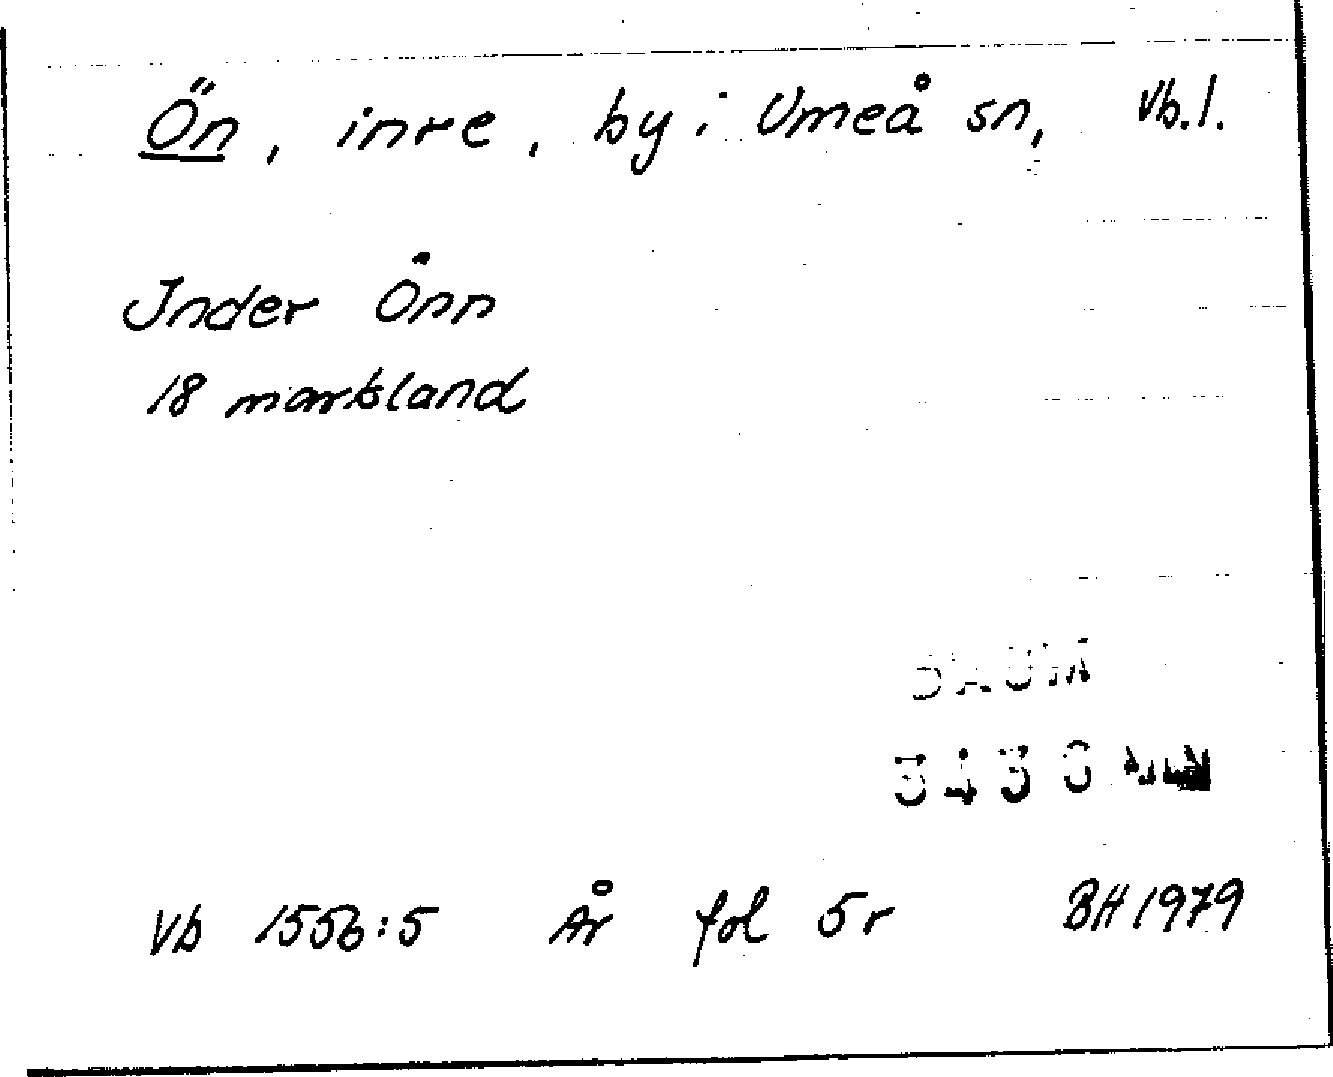 Ön, inre, by i Umeå sn, Vb.l.
Jnder Önn
18 markland
DAUM
Vb 1556:5 År fol 5r BH 1979